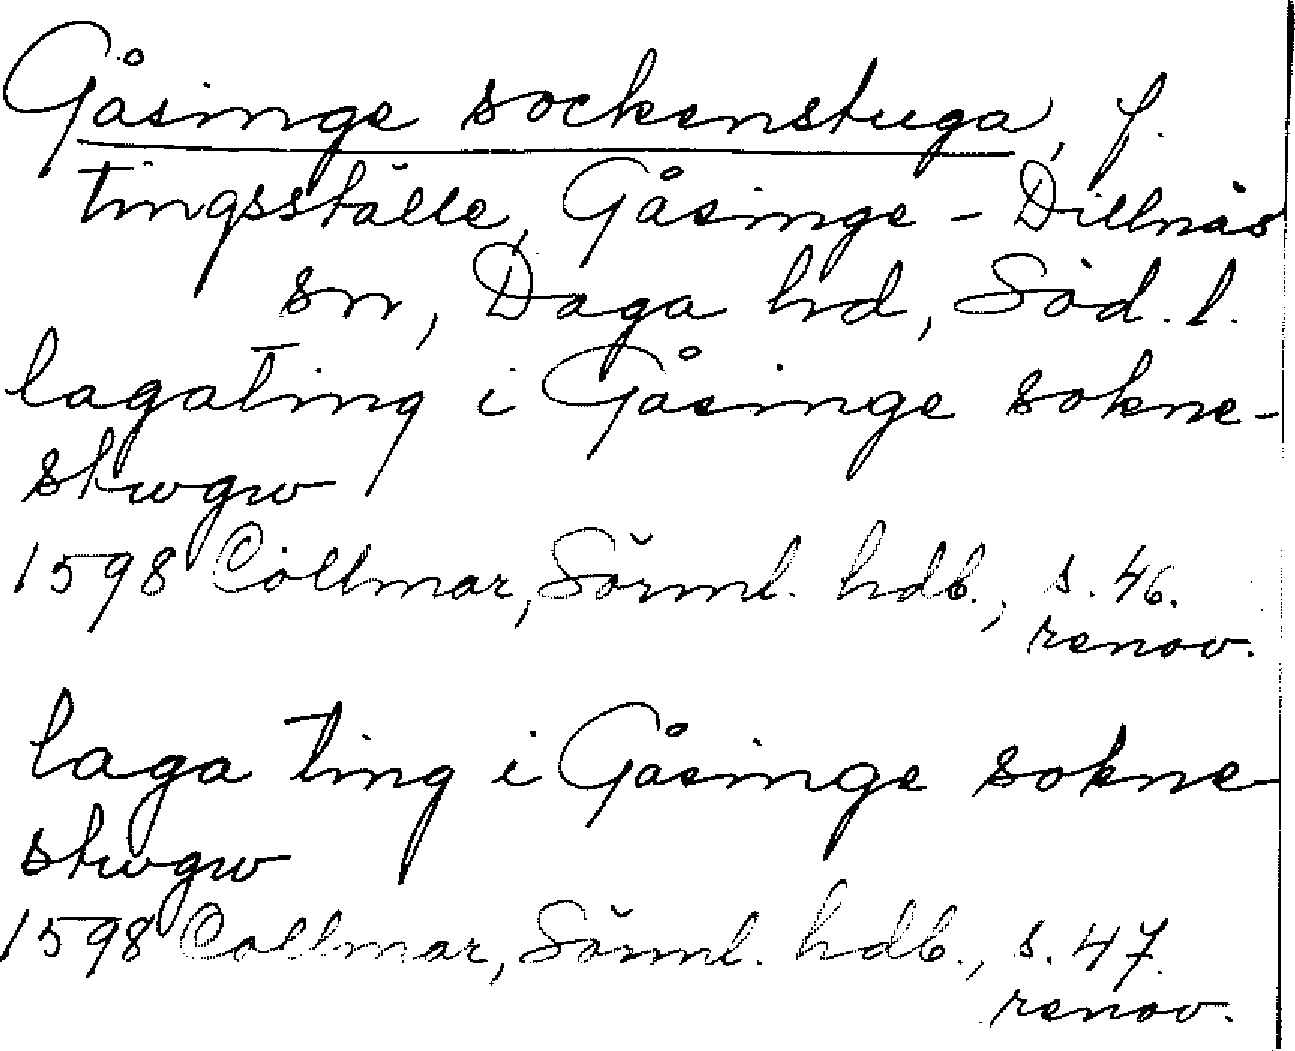 Gåsinge sockenstuga, f.
tingsställe, Gåsinge - Dillnäs
sn, Daga hd, Söd. l.
lagating i Gåsinge sokne-
stwgw
1598 Collmar, Sörml. hdb., s. 46.
renov.
laga ting i Gåsinge sokne-
stwgw
1598 Collmar, Sörml. hdb., s. 47.
renov.